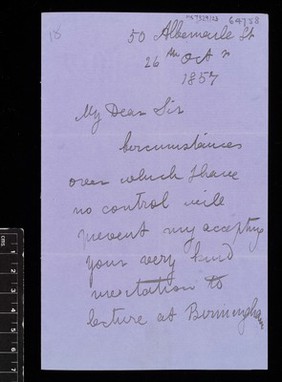 64758
18
50 Albemarle St
26th Oct r
1857
My Dear Sir
Circumstances
over which I have
no control will
prevent my accepting
your very kind
invitation to
lecture at Birmingham